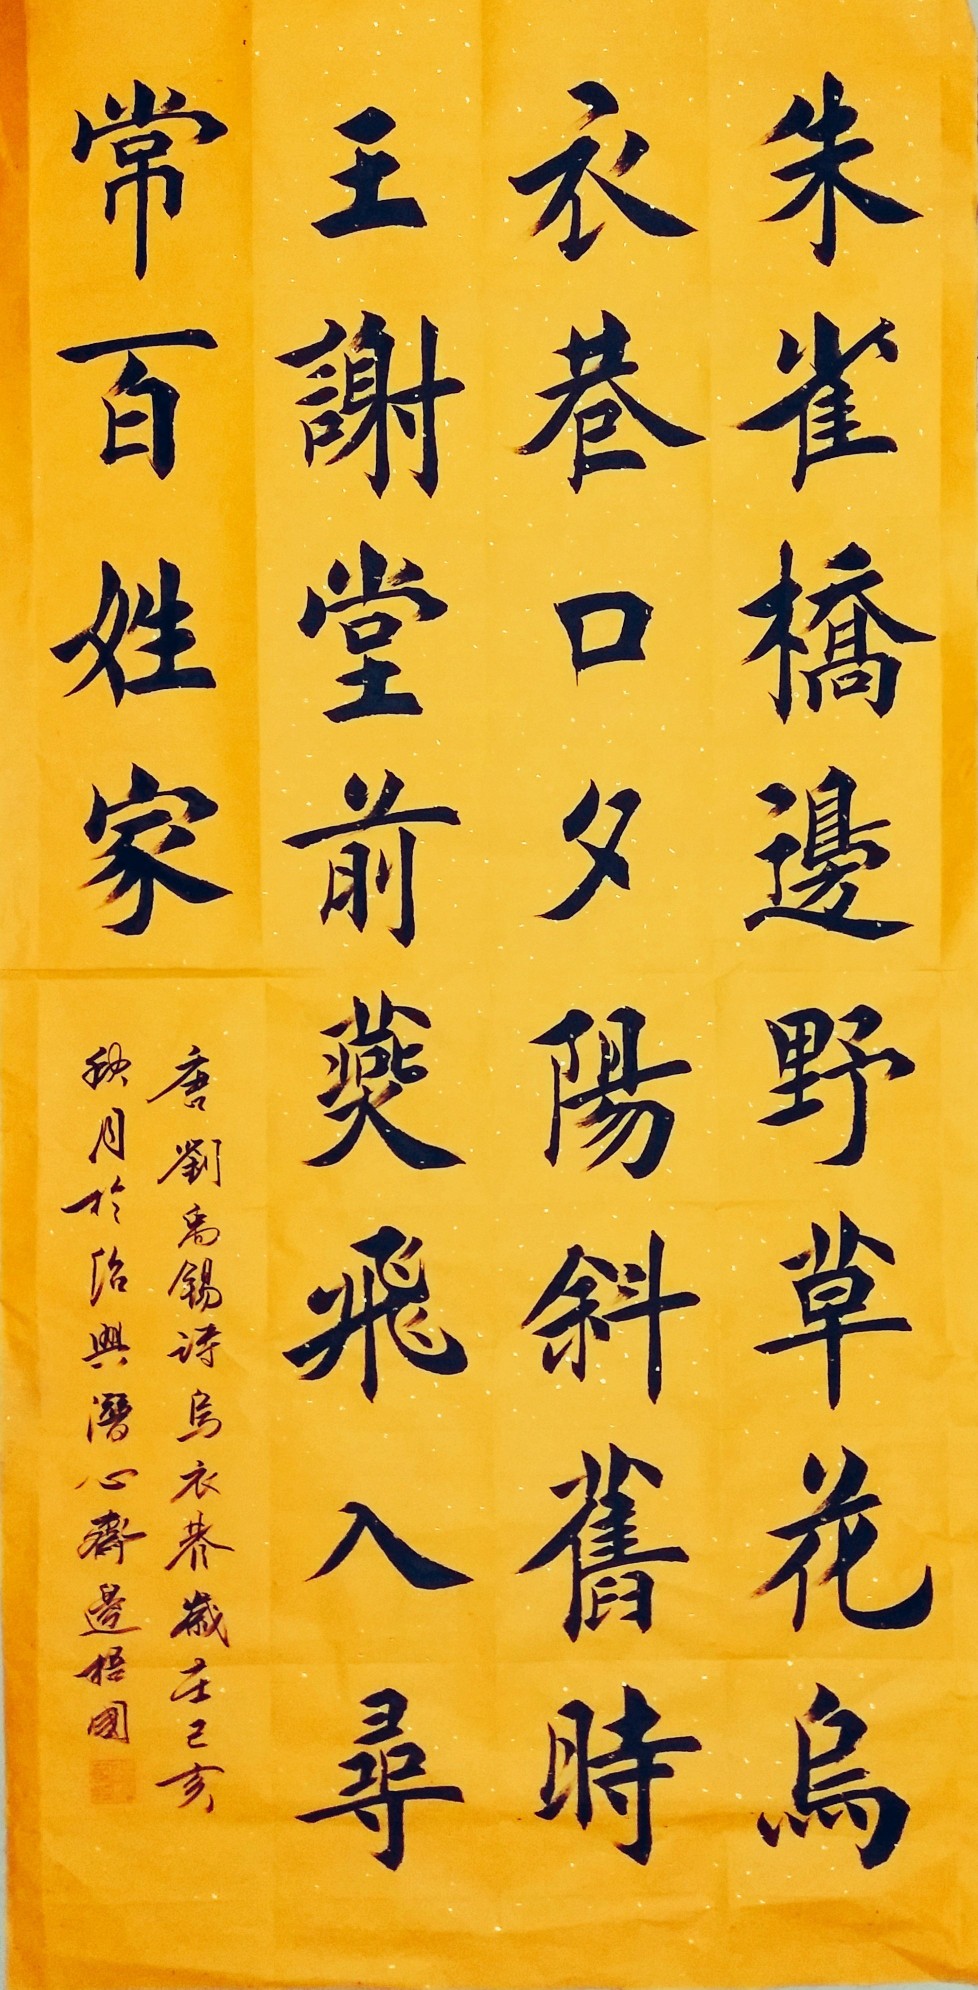 朱雀橋邊野草花烏
衣巷口夕陽斜舊時
王謝堂前燕飛入尋
常百姓家
唐劉禹錫詩烏衣巷歲在己亥
秋月於紹興潛心齋邊梧國